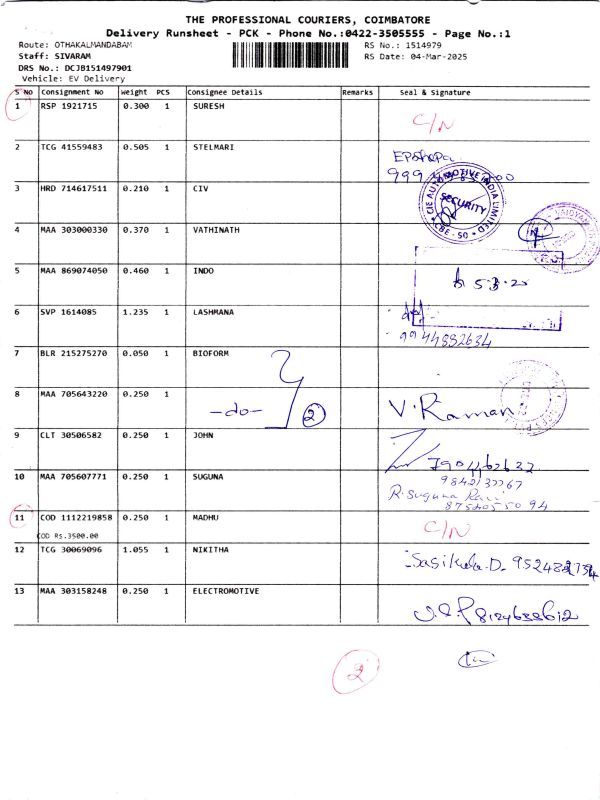 THE PROFESSIONAL COURIERS, COIMBATORE
Delivery Runsheet - PCK - Phone No.:0422-3505555 - Page No.:1
Route: OTHAKALMANDABAM
RS No.: 1514979
Staff: SIVARAM
RS Date: 04-Mar-2025
DRS No.: DCJB151497901
Vehicle: EV Delivery
S No Consignment No Weight PCS Consignee Details Remarks Seal & Signature
1 RSP 1921715 0.300 1 SURESH C/N
2 TCG 41559483 0.505 1 STELMARI
3 HRD 714617511 0.210 1 CIV
CIE AUTOMOTIVE INDIA LIMITED
SECURITY
4 MAA 303000330 0.370 1 VATHINATH
5 MAA 869074050 0.460 1 INDO
6 SVP 1614085 1.235 1 LASHMANA
9944882634
7 BLR 215275270 0.050 1 BIOFORM
8 MAA 705643220 0.250 1 -do- 2 V. Raman
9 CLT 30506582 0.250 1 JOHN
10 MAA 705607771 0.250 1 SUGUNA
R. Suguna
11 COD 1112219858 0.250 1 MADHU C/N
COD Rs.3500.00
12 TCG 30069096 1.055 1 NIKITHA Sasikala.D.
13 MAA 303158248 0.250 1 ELECTROMOTIVE
2